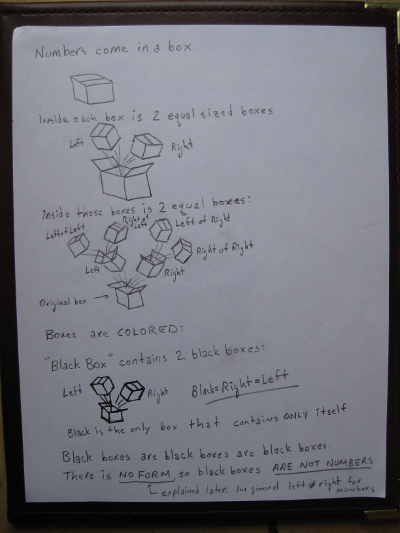 Numbers come in a box
Inside each box is 2 equal sized boxes
Left
Right
Inside those boxes is 2 equal boxes:
Left of Left
Right of Left
Left of Right
Right of Right
Left
Right
Original box
Boxes are COLORED:
"Black Box" contains 2 black boxes:
Left
Right
Black=Right=Left
Black is the only box that contains ONLY itself
Black boxes are black boxes are black boxes.
There is NO FORM, so black boxes ARE NOT NUMBERS
explained later. In general left ≠ right for numbers